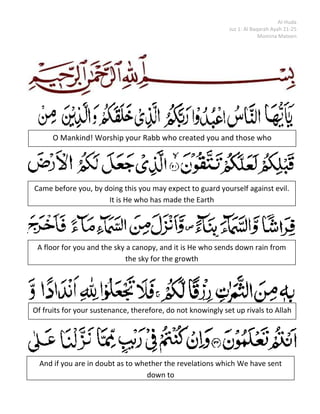 Al-Huda
Juz 1: Al Baqarah Ayah 21-25
Momina Mateen
بِسْمِ اللهِ الرَّحْمٰنِ الرَّحِيْمِ
يٰۤاَيُّهَا النَّاسُ اعْبُدُوْا رَبَّكُمُ الَّذِىْ خَلَقَكُمْ وَالَّذِيْنَ مِنْ
O Mankind! Worship your Rabb who created you and those who
قَبْلِكُمْ لَعَلَّكُمْ تَتَّقُوْنَ ﴿۲۱﴾ الَّذِىْ جَعَلَ لَكُمُ الْاَرْضَ
Came before you, by doing this you may expect to guard yourself against evil.
It is He who has made the Earth
فِرَاشًا وَّالسَّمَآءَ بِنَآءً ۪ وَّاَنْزَلَ مِنَ السَّمَآءِ مَآءً فَاَخْرَجَ
A floor for you and the sky a canopy, and it is He who sends down rain from
the sky for the growth
بِهٖ مِنَ الثَّمَرٰتِ رِزْقًا لَّكُمْ ۚ فَلَا تَجْعَلُوْا لِلّٰهِ اَنْدَادًا وَّ
Of fruits for your sustenance, therefore, do not knowingly set up rivals to Allah
اَنْتُمْ تَعْلَمُوْنَ ﴿۲۲﴾ وَاِنْ كُنْتُمْ فِىْ رَيْبٍ مِّمَّا نَزَّلْنَا عَلٰى
And if you are in doubt as to whether the revelations which We have sent
down to